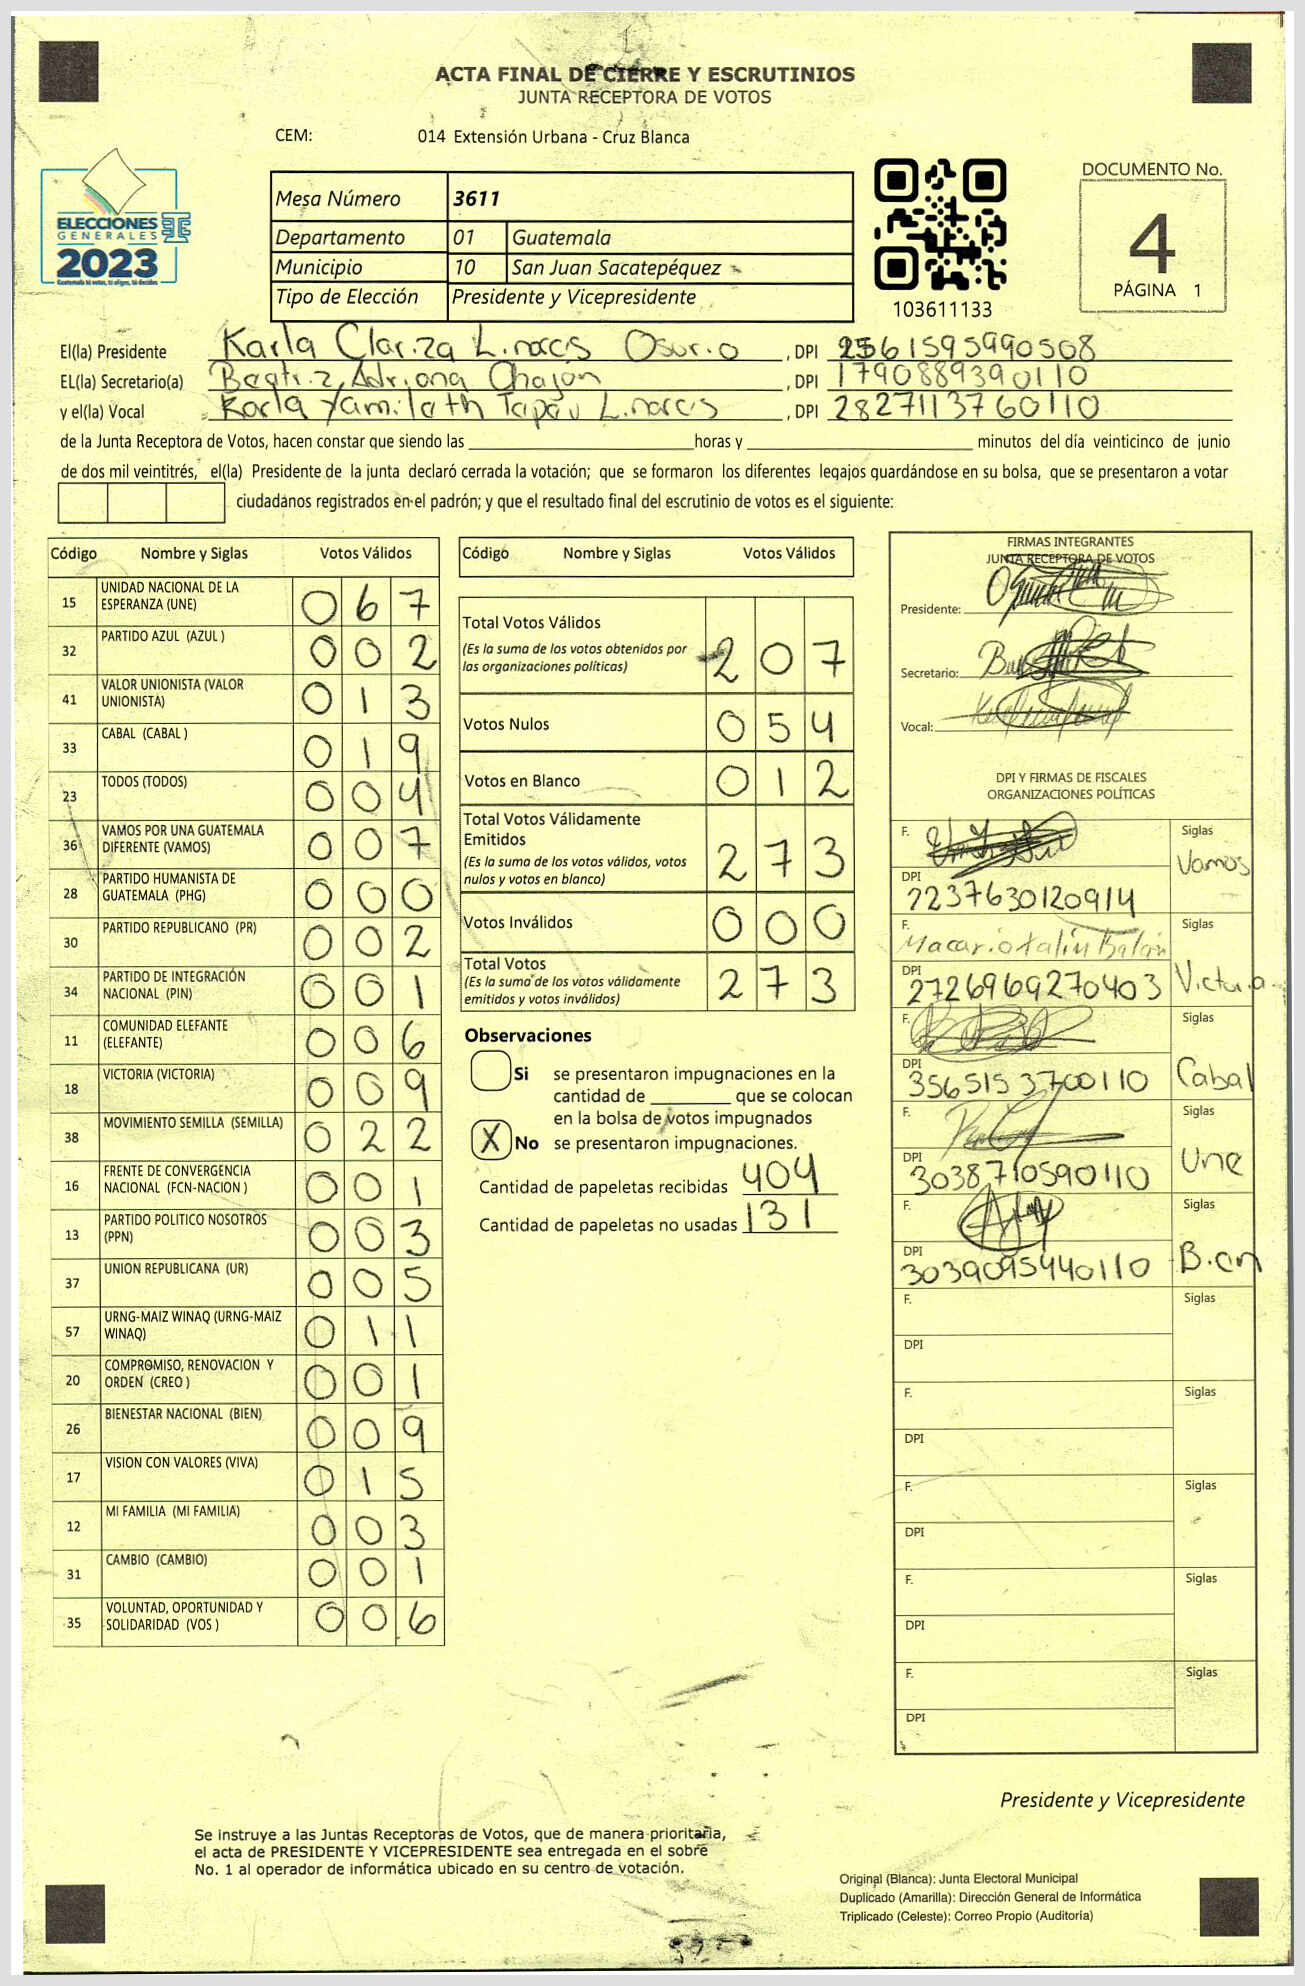 ACTA FINAL DE CIERRE Y ESCRUTINIOS
JUNTA RECEPTORA DE VOTOS
CEM: 014 Extensión Urbana - Cruz Blanca
ELECCIONES
GENERALES
2023
Guatemala tú votas, tú eliges, tú decides
Mesa Número 3611
Departamento 01 Guatemala
Municipio 10 San Juan Sacatepéquez
Tipo de Elección Presidente y Vicepresidente
103611133
DOCUMENTO No.
4
PÁGINA 1
El(la) Presidente Karla Clariza Linares Osorio , DPI 2561595990508
EL(la) Secretario(a) Beatriz Adriana Chajón , DPI 1790889390110
y el(la) Vocal Karla Yamileth Tapáu Linares , DPI 2827113760110
de la Junta Receptora de Votos, hacen constar que siendo las horas y minutos del día veinticinco de junio
de dos mil veintitrés, el(la) Presidente de la junta declaró cerrada la votación; que se formaron los diferentes legajos guardándose en su bolsa, que se presentaron a votar
ciudadanos registrados en el padrón; y que el resultado final del escrutinio de votos es el siguiente:
Código Nombre y Siglas Votos Válidos
15 UNIDAD NACIONAL DE LA ESPERANZA (UNE) 0 6 7
32 PARTIDO AZUL (AZUL ) 0 0 2
41 VALOR UNIONISTA (VALOR UNIONISTA) 0 1 3
33 CABAL (CABAL ) 0 1 9
23 TODOS (TODOS) 0 0 4
36 VAMOS POR UNA GUATEMALA DIFERENTE (VAMOS) 0 0 7
28 PARTIDO HUMANISTA DE GUATEMALA (PHG) 0 0 0
30 PARTIDO REPUBLICANO (PR) 0 0 2
34 PARTIDO DE INTEGRACIÓN NACIONAL (PIN) 0 0 1
11 COMUNIDAD ELEFANTE (ELEFANTE) 0 0 6
18 VICTORIA (VICTORIA) 0 0 9
38 MOVIMIENTO SEMILLA (SEMILLA) 0 2 2
16 FRENTE DE CONVERGENCIA NACIONAL (FCN-NACION ) 0 0 1
13 PARTIDO POLITICO NOSOTROS (PPN) 0 0 3
37 UNION REPUBLICANA (UR) 0 0 5
57 URNG-MAIZ WINAQ (URNG-MAIZ WINAQ) 0 1 1
20 COMPROMISO, RENOVACION Y ORDEN (CREO ) 0 0 1
26 BIENESTAR NACIONAL (BIEN) 0 0 9
17 VISION CON VALORES (VIVA) 0 1 5
12 MI FAMILIA (MI FAMILIA) 0 0 3
31 CAMBIO (CAMBIO) 0 0 1
35 VOLUNTAD, OPORTUNIDAD Y SOLIDARIDAD (VOS ) 0 0 6
Código Nombre y Siglas Votos Válidos
Total Votos Válidos 2 0 7
(Es la suma de los votos obtenidos por
las organizaciones políticas)
Votos Nulos 0 5 4
Votos en Blanco 0 1 2
Total Votos Válidamente
Emitidos 2 7 3
(Es la suma de los votos válidos, votos
nulos y votos en blanco)
Votos Inválidos 0 0 0
Total Votos 2 7 3
(Es la suma de los votos válidamente
emitidos y votos inválidos)
Observaciones
Si se presentaron impugnaciones en la
cantidad de que se colocan
en la bolsa de votos impugnados
X No se presentaron impugnaciones.
Cantidad de papeletas recibidas 404
Cantidad de papeletas no usadas 131
FIRMAS INTEGRANTES
JUNTA RECEPTORA DE VOTOS
Presidente:
Secretario:
Vocal:
DPI Y FIRMAS DE FISCALES
ORGANIZACIONES POLÍTICAS
F. Siglas Vamos
DPI 2237630120914
F. Macario Siglas Victoria
DPI 2726969270403
F. Siglas Cabal
DPI 3565153700110
F. Siglas Une
DPI 3038710590110
F. Siglas Bien
DPI 3039095440110
F. Siglas
DPI
F. Siglas
DPI
F. Siglas
DPI
F. Siglas
DPI
F. Siglas
DPI
Presidente y Vicepresidente
Se instruye a las Juntas Receptoras de Votos, que de manera prioritaria,
el acta de PRESIDENTE Y VICEPRESIDENTE sea entregada en el sobre
No. 1 al operador de informática ubicado en su centro de votación.
Original (Blanca): Junta Electoral Municipal
Duplicado (Amarilla): Dirección General de Informática
Triplicado (Celeste): Correo Propio (Auditoría)